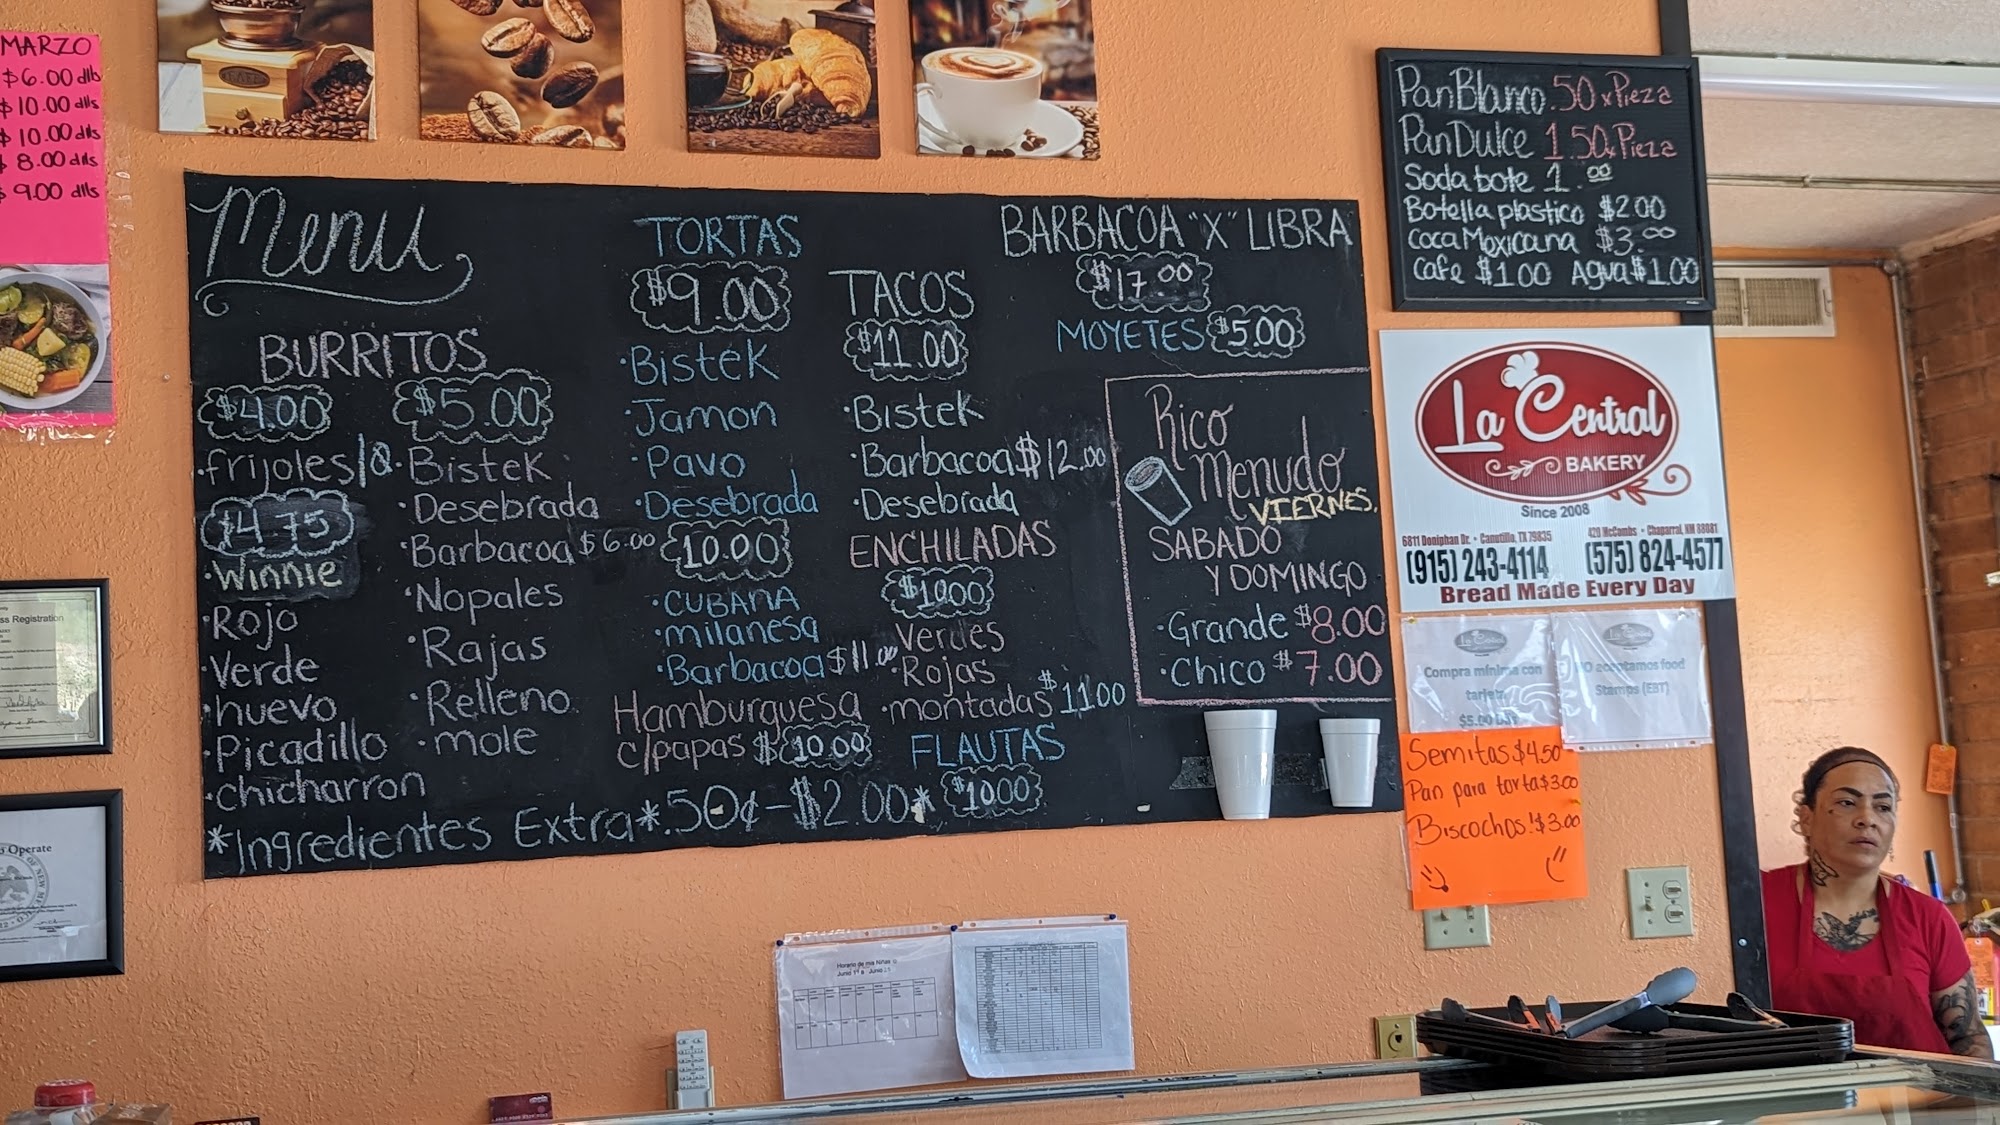 MARZO
$6.00 dlls
$10.00 dlls
$10.00 dlls
$8.00 dlls
$9.00 dlls
Menu
BURRITOS
$4.00
·frijoles/Q
$4.75
·Winnie
·Rojo
·Verde
·huevo
·Picadillo
·chicharron
$5.00
·Bistek
·Desebrada
·Barbacoa $6.00
·Nopales
·Rajas
·Relleno
·mole
TORTAS
$9.00
·Bistek
·Jamon
·Pavo
·Desebrada
10.00
·CUBANA
·milanesa
·Barbacoa $11.00
Hamburguesa
c/papas $10.00
TACOS
$11.00
·Bistek
·Barbacoa $12.00
·Desebrada
ENCHILADAS
$10.00
Verdes
·Rojas
·montadas $11.00
FLAUTAS
$10.00
*Ingredientes Extra*.50¢-$2.00*
BARBACOA "X" LIBRA
$17.00
MOYETES $5.00
Rico
Menudo
VIERNES,
SABADO
Y DOMINGO
·Grande $8.00
·Chico $7.00
Pan Blanco .50 x Pieza
Pan Dulce 1.50 x Pieza
Soda bote 1.00
Botella plastico $2.00
Coca Mexicana $3.00
Cafe $1.00 Agua $1.00
La Central
BAKERY
Since 2008
6811 Doniphan Dr. • Canutillo, TX 79835
(915) 243-4114
420 McCombs • Chaparral, NM 88081
(575) 824-4577
Bread Made Every Day
La Central
Compra minima con
tarjeta
$5.00
La Central
NO aceptamos food
Stamps (EBT)
Semitas $4.50
Pan para torta $3.00
Biscochos! $3.00
Registration
Operate
Horario de mis Niñas
Junio